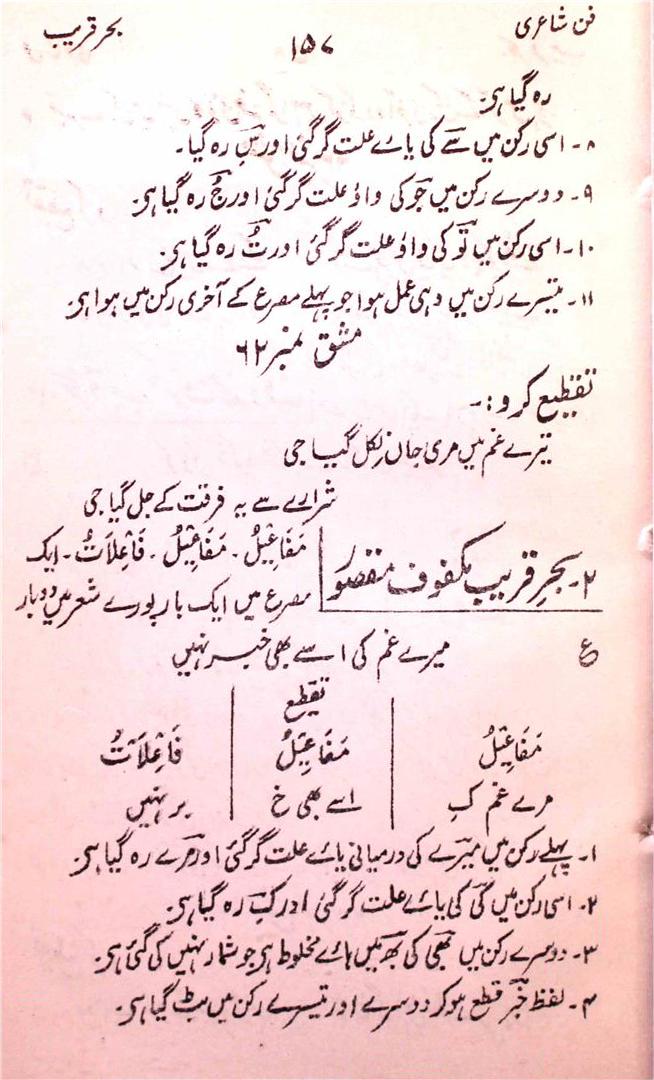 فن شاعری
۱۵۷
بحر قریب
رہ گیا ہی۔
۸۔ اسی رکن میں سے کی یائے علت گر گئی اور سِ رہ گیا۔
۹۔ دوسرے رکن میں جو کی واؤ علت گر گئی اور جُ رہ گیا ہی۔
۱۰۔ اسی رکن میں تو کی واؤ علت گر گئی اور تُ رہ گیا ہی۔
۱۱۔ تیسرے رکن میں وہی عمل ہوا جو پہلے مصرع کے آخری رکن میں ہوا ہی۔
مشق نمبر ۶۲
تقطیع کرو :۔
تیرے غم میں مری جان نکل گیا جی
شرارے سے یہ فرقت کے جل گیا جی
۲۔ بحرِ قریب مکفوف مقصور
مَفَاعِیْلُ۔ مَفَاعِیْلُ۔ فَاعِلَاتُ۔ ایک
مصرع میں ایک بار پورے شعر میں دو بار
ع میرے غم کی اسے بھی خبر نہیں
تقطیع
مَفَاعِیْلُ مَفَاعِیْلُ فَاعِلَاتُ
مرے غم کِ اسے بھی خ بر نہیں
۱۔ پہلے رکن میں میرے کی درمیانی یائے علت گر گئی اور مرے رہ گیا ہی۔
۲۔ اسی رکن میں کی کی یائے علت گر گئی اور کِ رہ گیا ہی۔
۳۔ دوسرے رکن میں بھی کی بھ میں ہائے مخلوط ہی جو شمار نہیں کی گئی ہی۔
۴۔ لفظ خبر قطع ہو کر دوسرے اور تیسرے رکن میں بٹ گیا ہی۔